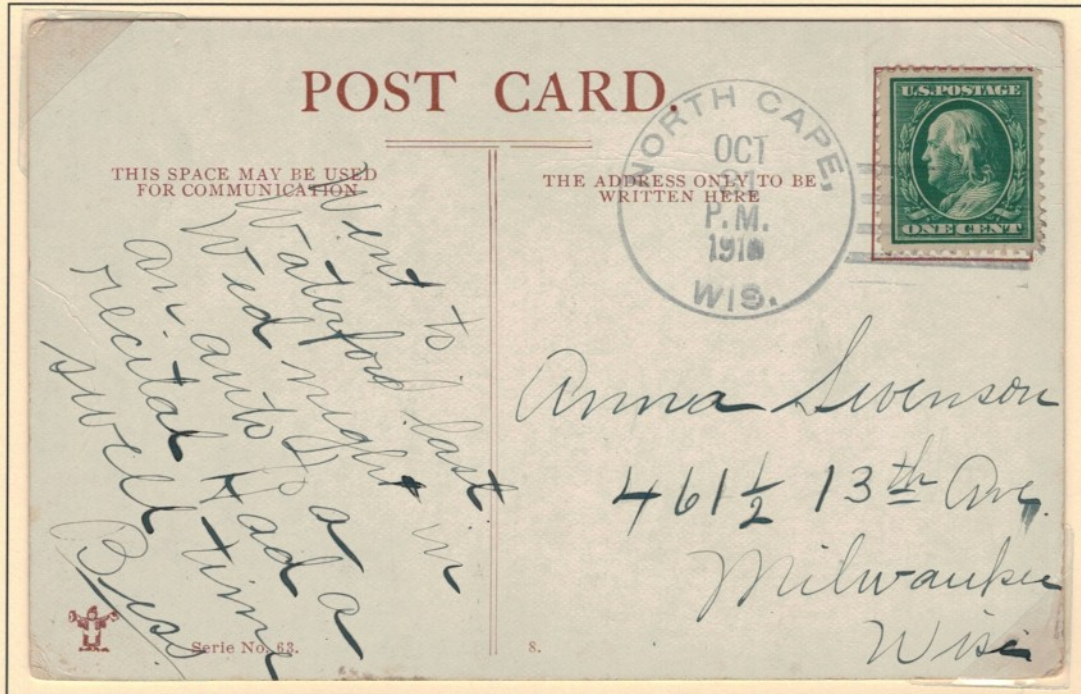 POST CARD.
THIS SPACE MAY BE USED
FOR COMMUNICATION
THE ADDRESS ONLY TO BE
WRITTEN HERE
NORTH CAPE,
OCT
P.M.
1910
WIS.
U.S. POSTAGE
ONE CENT
Went to
Waterford last
Wed night in
an auto to a
recital Had a
swell time
Anna Swenson
461 1/2 13th Ave.
Milwaukee
Wis.
Serie No. 63.
8.